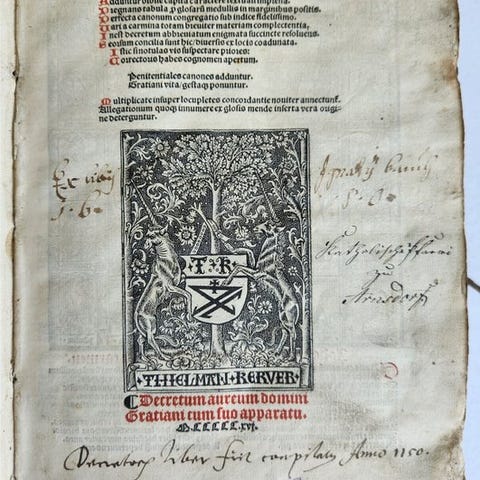 Adduntur biblie capita caractere textuali impensa.
Pregnans tabula p glosarũ medullis in marginibus positis.
Perfecta canonum congregatio sub indice fidelissimo.
Dari a carmina totam breuiter materiam complectentia,
Inest decretum abbreuiatum enigmata succincte resoluens.
Seorsum concilia sunt hic/diuersis ex locis coadunata.
Istic sinotulas vis suspectare priores:
Correctorus habes cognomen apertum.
Penitentiales canones adduntur.
Gratiani vita/gestaq3 ponuntur.
Multiplicate insuper locupletes concordantie nouiter annectunt̃.
Allegationum quoq3 innumere ex glosis mende inserta vera origi-
ne deterguntur.
Ex libris
Ignatij
Katholische Pfarrei
zu
Arnsdorf
T R
THIELMAN KERVER
Decretum aureum domini
Gratiani cum suo apparatu.
M.CCCCC.xvj.
liber fuit Anno 1150.